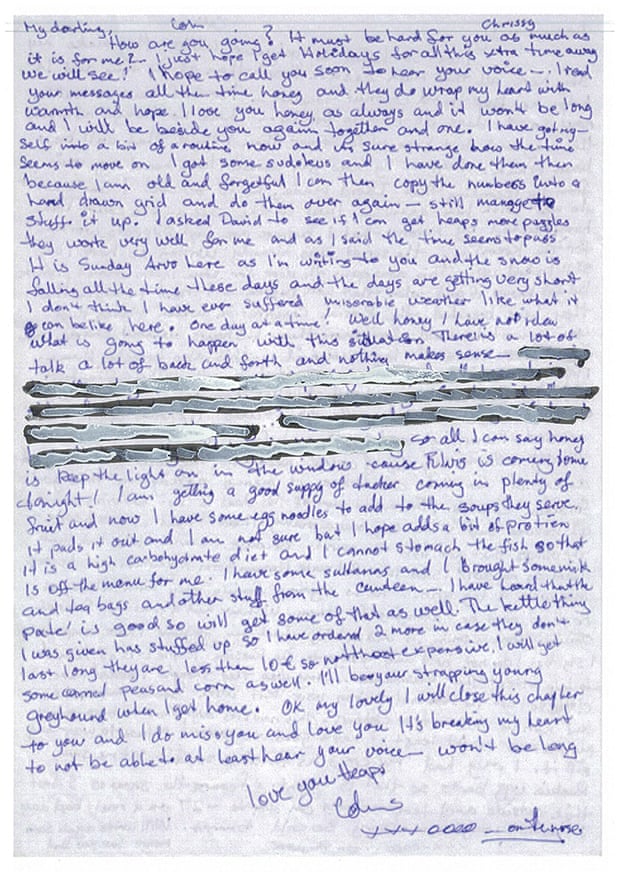 My darling, Colin Chrissy
How are you going? It must be hard for you as much as
it is for me? I just hope I get Holidays for all this xtra time away
we will see! I hope to call you soon to hear your voice - I read
your messages all the time honey and they do wrap my heart with
warmth and hope. I love you honey as always and it won't be long
and I will be beside you again together and one. I have got my-
self into a bit of a routine now and its sure strange how the time
seems to move on I got some sudokus and I have done them then
because I am old and forgetful I can then copy the numbers into a
hand drawn grid and do them over again - still manage to
stuff it up. I asked David to see if I can get heaps more puzzles
they work very well for me and as I said the time seems to pass
It is Sunday Arvo here as I'm writing to you and the snow is
falling all the time these days and the days are getting very short
I don't think I have ever suffered miserable weather like what it
can be like here. One day at a time! Well honey I have not idea
what is going to happen with this situation There is a lot of
talk a lot of back and forth and nothing makes sense -
so all I can say honey
is keep the light on in the window cause is coming home
tonight! I am getting a good supply of tucker coming in plenty of
fruit and now I have some egg noodles to add to the soups they serve.
it pads it out and I am not sure but I hope adds a bit of protien
it is a high carbohydrate diet and I cannot stomach the fish so that
is off the menu for me. I have some sultanas and I brought some milk
and tea bags and other stuff from the canteen - I have heard that the
pate' is good so will get some of that as well. The kettle thing
I was given has stuffed up so I have orderd 2 more in case they don't
last long they are less than 10€ so not that expensive. I will get
some canned peas and corn as well. I'll be your strapping young
greyhound when I get home. OK my lovely I will close this chapter
to you and I do miss you and love you It's breaking my heart
to not be able to at least hear your voice - won't be long
love you Heaps
Colin
xxx0000 - on the nose